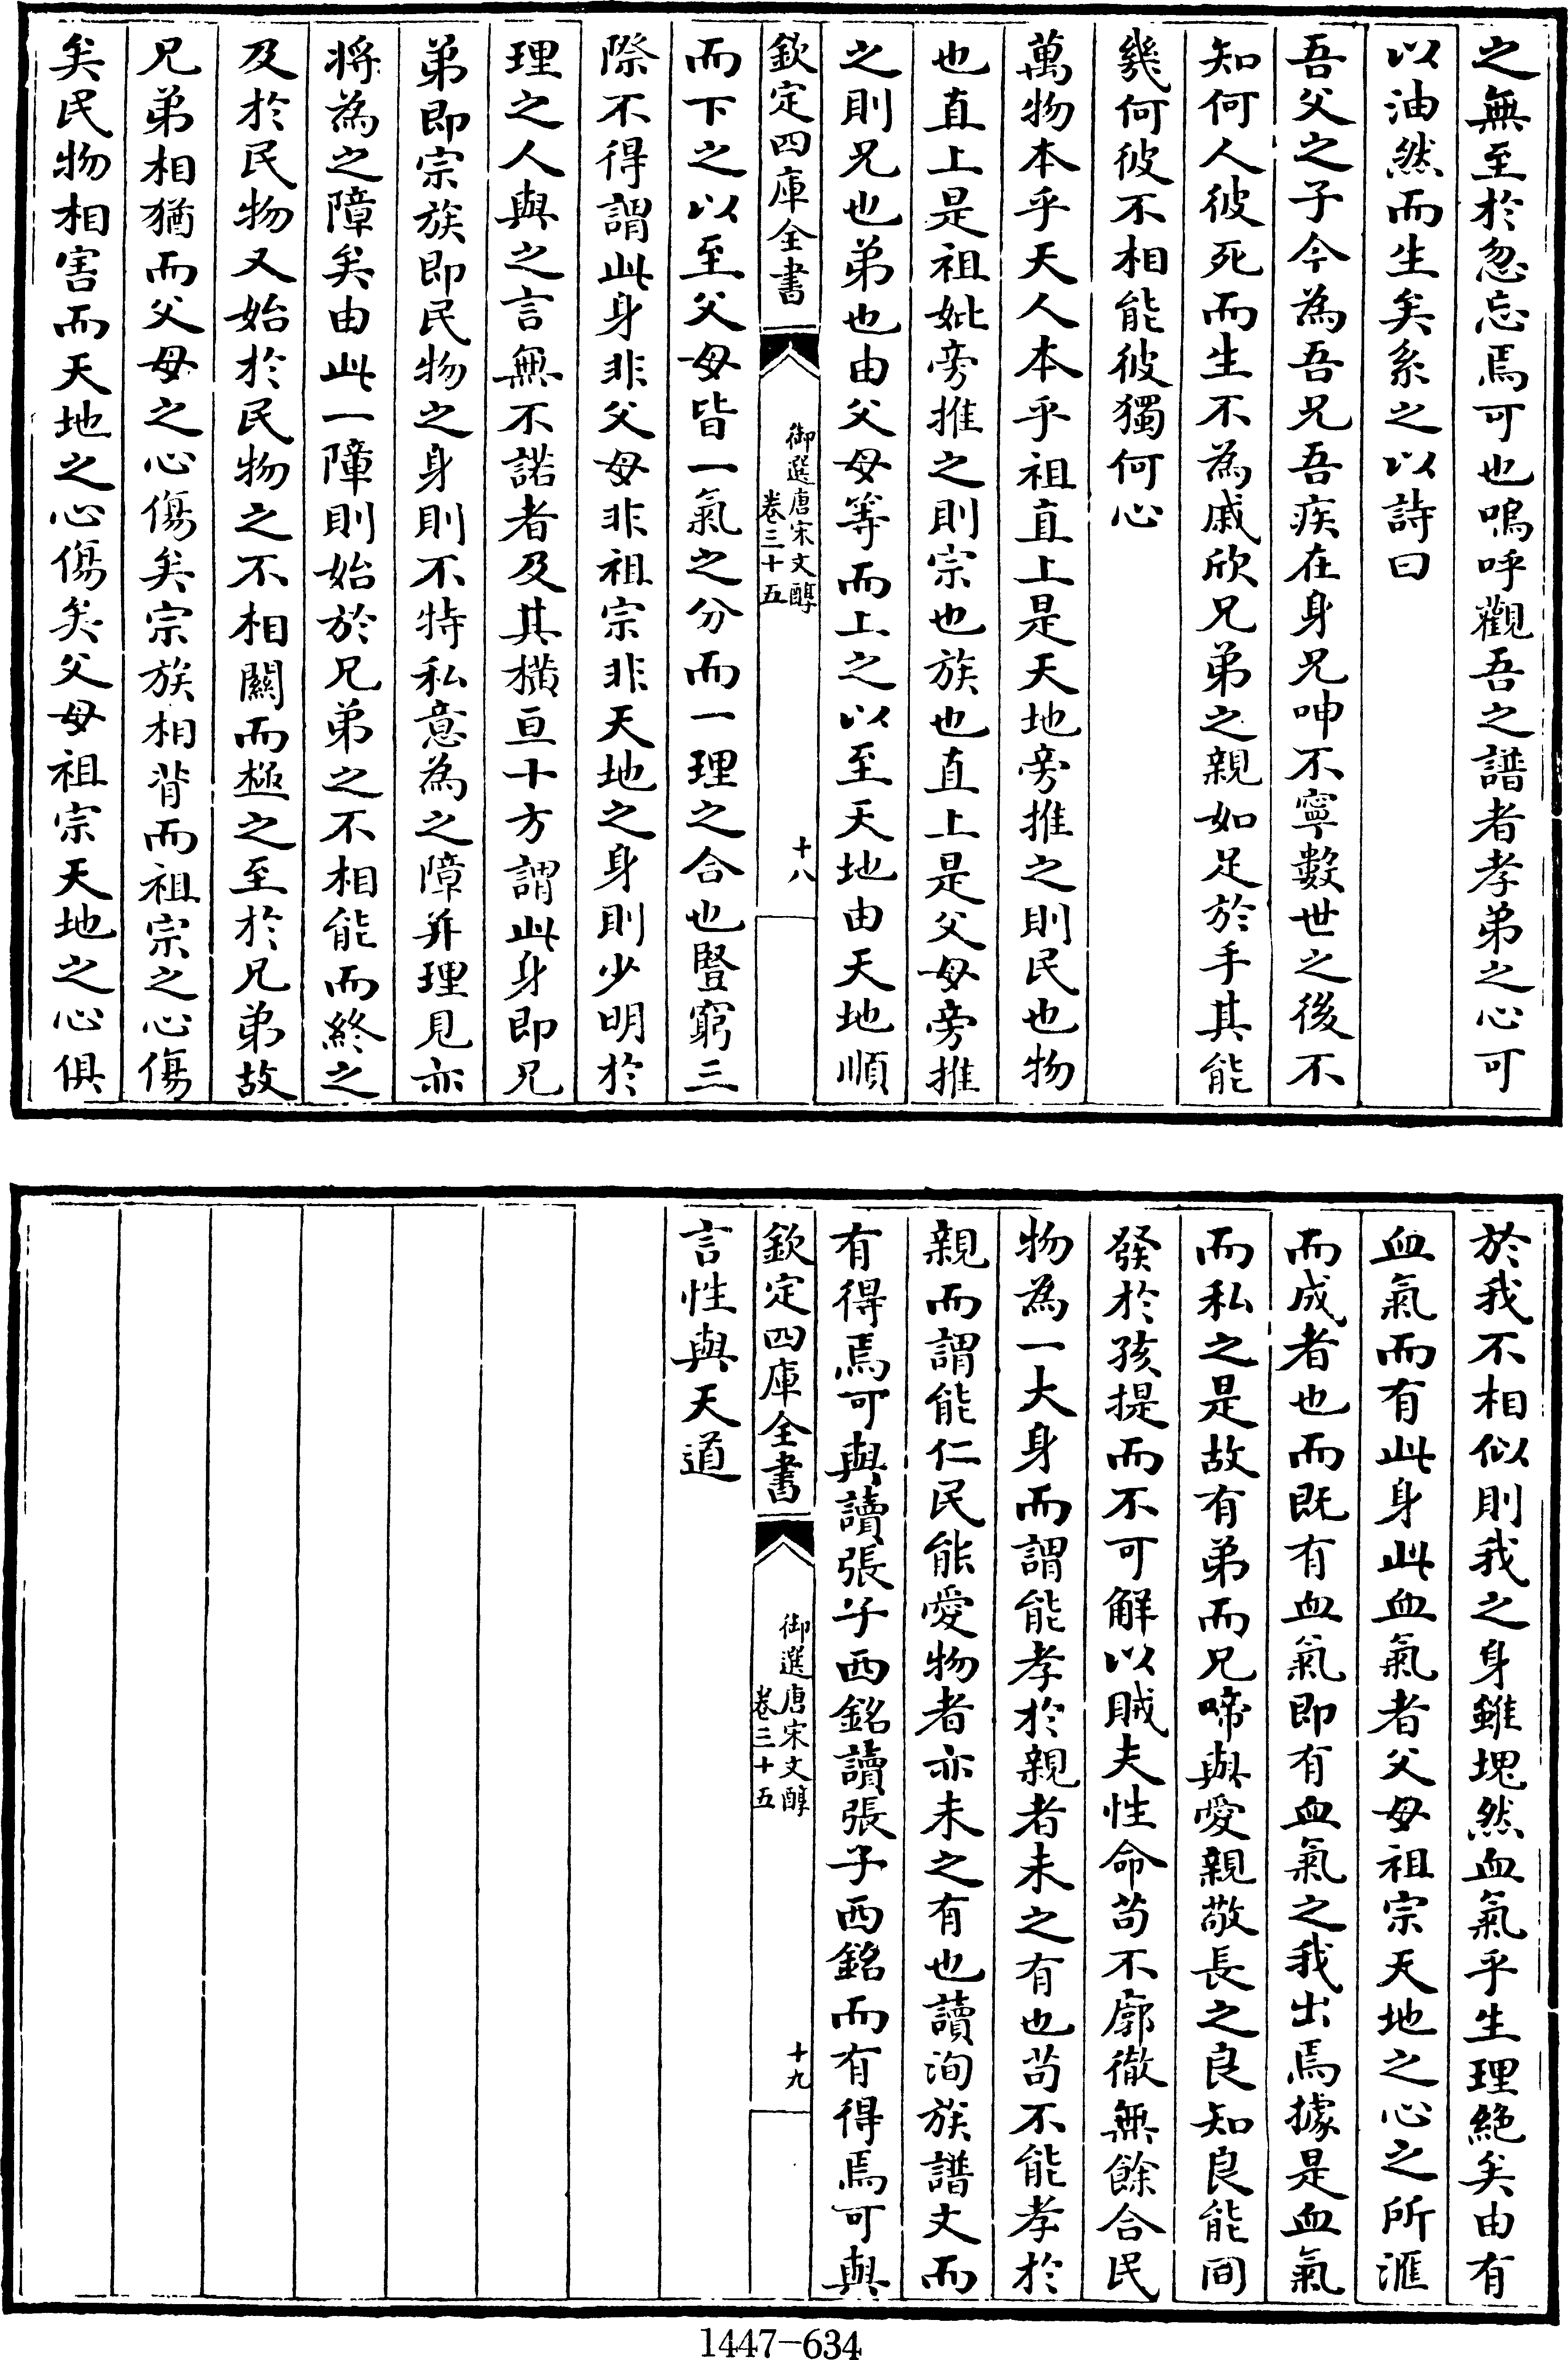 之無至於忽忘焉可也嗚呼觀吾之譜者孝弟之心可
以油然而生矣系之以詩曰
吾父之子今為吾兄吾疾在身兄呻不寧數世之後不
知何人彼死而生不為戚欣兄弟之親如足於手其能
幾何彼不相能彼獨何心
萬物本乎天人本乎祖直上是天地旁推之則民也物
也直上是祖妣旁推之則宗也族也直上是父母旁推
之則兄也弟也由父母等而上之以至天地由天地順
欽定四庫全書
御選唐宋文醇
卷三十五
十八
而下之以至父母皆一氣之分而一理之合也豎窮三
際不得謂此身非父母非祖宗非天地之身則少明於
理之人與之言無不諾者及其橫亘十方謂此身即兄
弟即宗族即民物之身則不特私意為之障并理見亦
將為之障矣由此一障則始於兄弟之不相能而終之
及於民物又始於民物之不相關而極之至於兄弟故
兄弟相猶而父母之心傷矣宗族相背而祖宗之心傷
矣民物相害而天地之心傷矣父母祖宗天地之心俱
於我不相似則我之身雖塊然血氣乎生理絕矣由有
血氣而有此身此血氣者父母祖宗天地之心之所滙
而成者也而既有血氣即有血氣之我出焉據是血氣
而私之是故有弟而兄啼與愛親敬長之良知良能同
發於孩提而不可解以賊夫性命苟不廓徹無餘合民
物為一大身而謂能孝於親者未之有也苟不能孝於
親而謂能仁民能愛物者亦未之有也讀洵族譜文而
有得焉可與讀張子西銘讀張子西銘而有得焉可與
欽定四庫全書
御選唐宋文醇
卷三十五
十九
言性與天道
1447-634